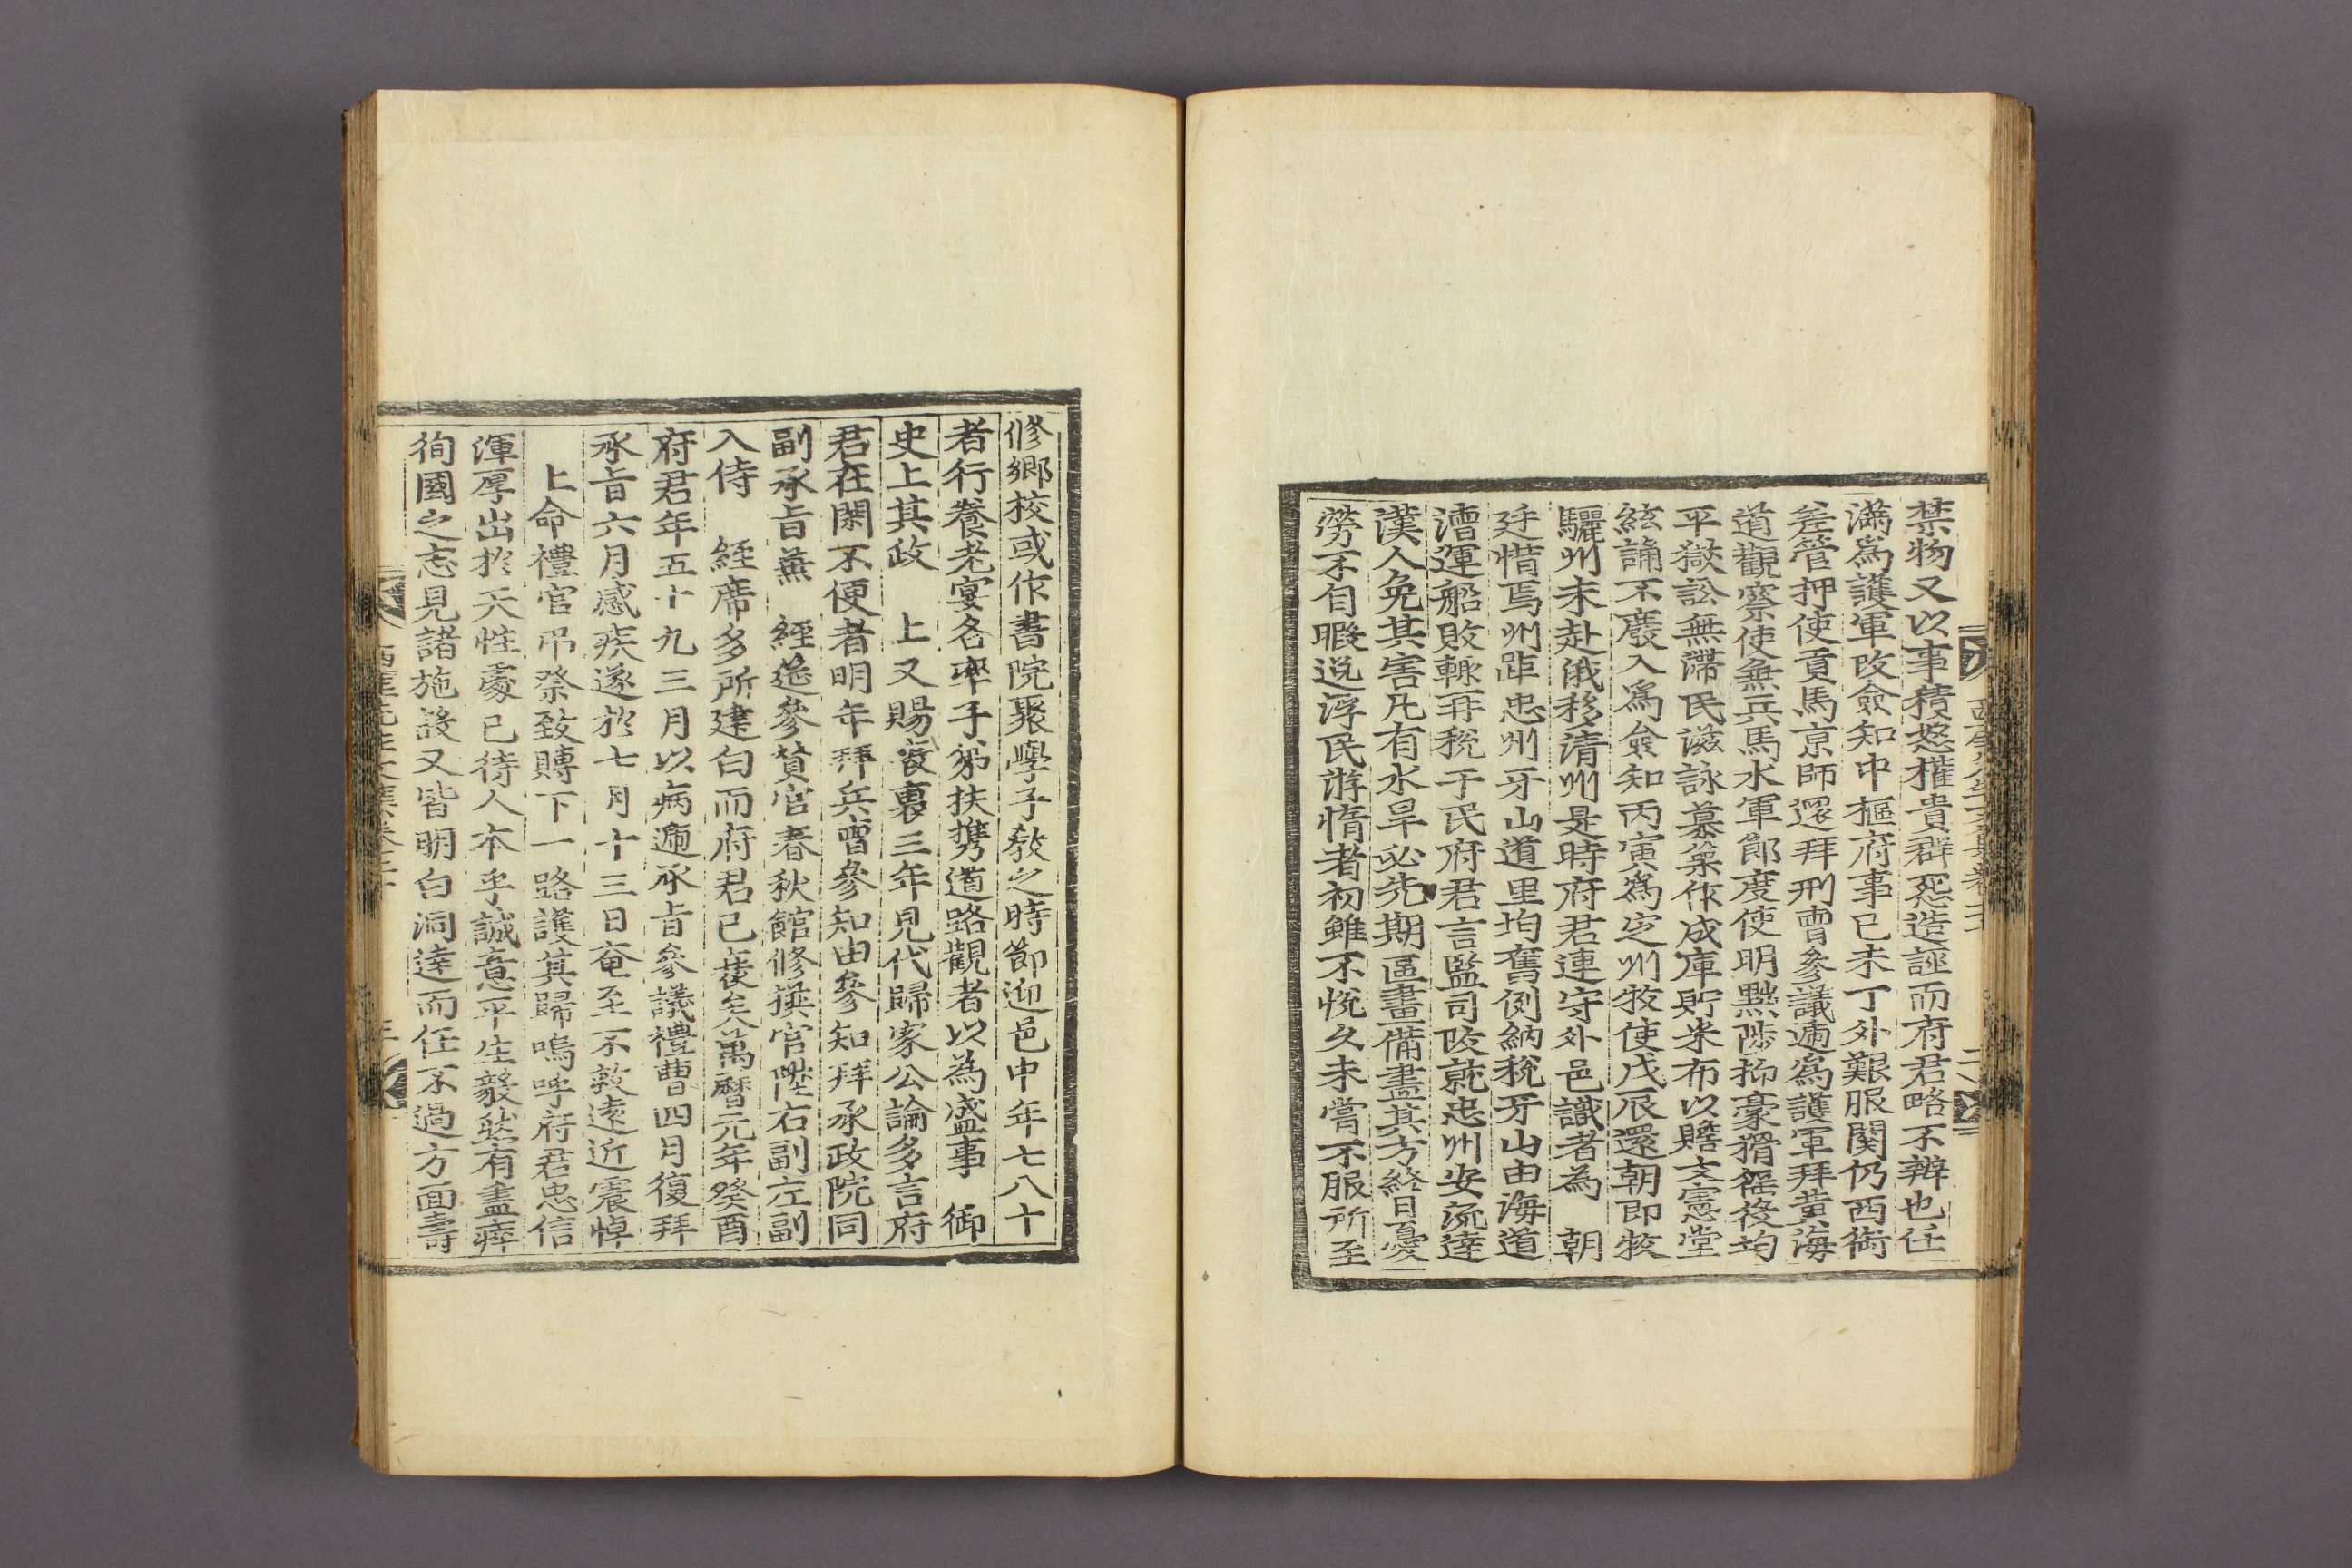 禁物又以事積怒權貴群死造誣而府君略不辨也任
滿爲護軍改僉知中樞府事己未丁外艱服闋仍西衝
差管押使貢馬京師還拜刑曹參議遞爲護軍拜黃海
道觀察使兼兵馬水軍節度使明黜陟抑豪猾徭役均
平獄訟無滯民滋詠慕築作成庫貯米布以贍支憲堂
絃誦不廢入爲僉知丙寅爲定州牧使戊辰還朝即牧
驪州未赴俄移淸州是時府君連守外邑識者為 朝
廷惜焉州距忠州牙山道里均舊例納稅牙山由海道
漕運船敗輒再稅于民府君言監司改就忠州安流達
漢人免其害凡有水旱必先期區畫備盡其方終日憂
勞不自暇逸浮民游惰者初雖不悅久未嘗不服所至
修鄉校或作書院聚學子敎之時節迎邑中年七八十
者行養老宴各率子弟扶携道路觀者以為盛事 御
史上其政 上又賜表裏三年見代歸家公論多言府
君在閑不便者明年拜兵曹參知由參知拜承政院同
副承旨兼 經筵參贊官春秋館修撰官陞右副左副
入侍 經席多所建白而府君已衰矣萬曆元年癸酉
府君年五十九三月以病遞承旨參議禮曹四月復拜
承旨六月感疾遂於七月十三日奄至不救遠近震悼
上命禮官弔祭致賻下一路護其歸嗚呼府君忠信
渾厚出於天性處己待人本乎誠意平生毅然有盡瘁
徇國之志見諸施設又皆明白洞達而任不過方面壽